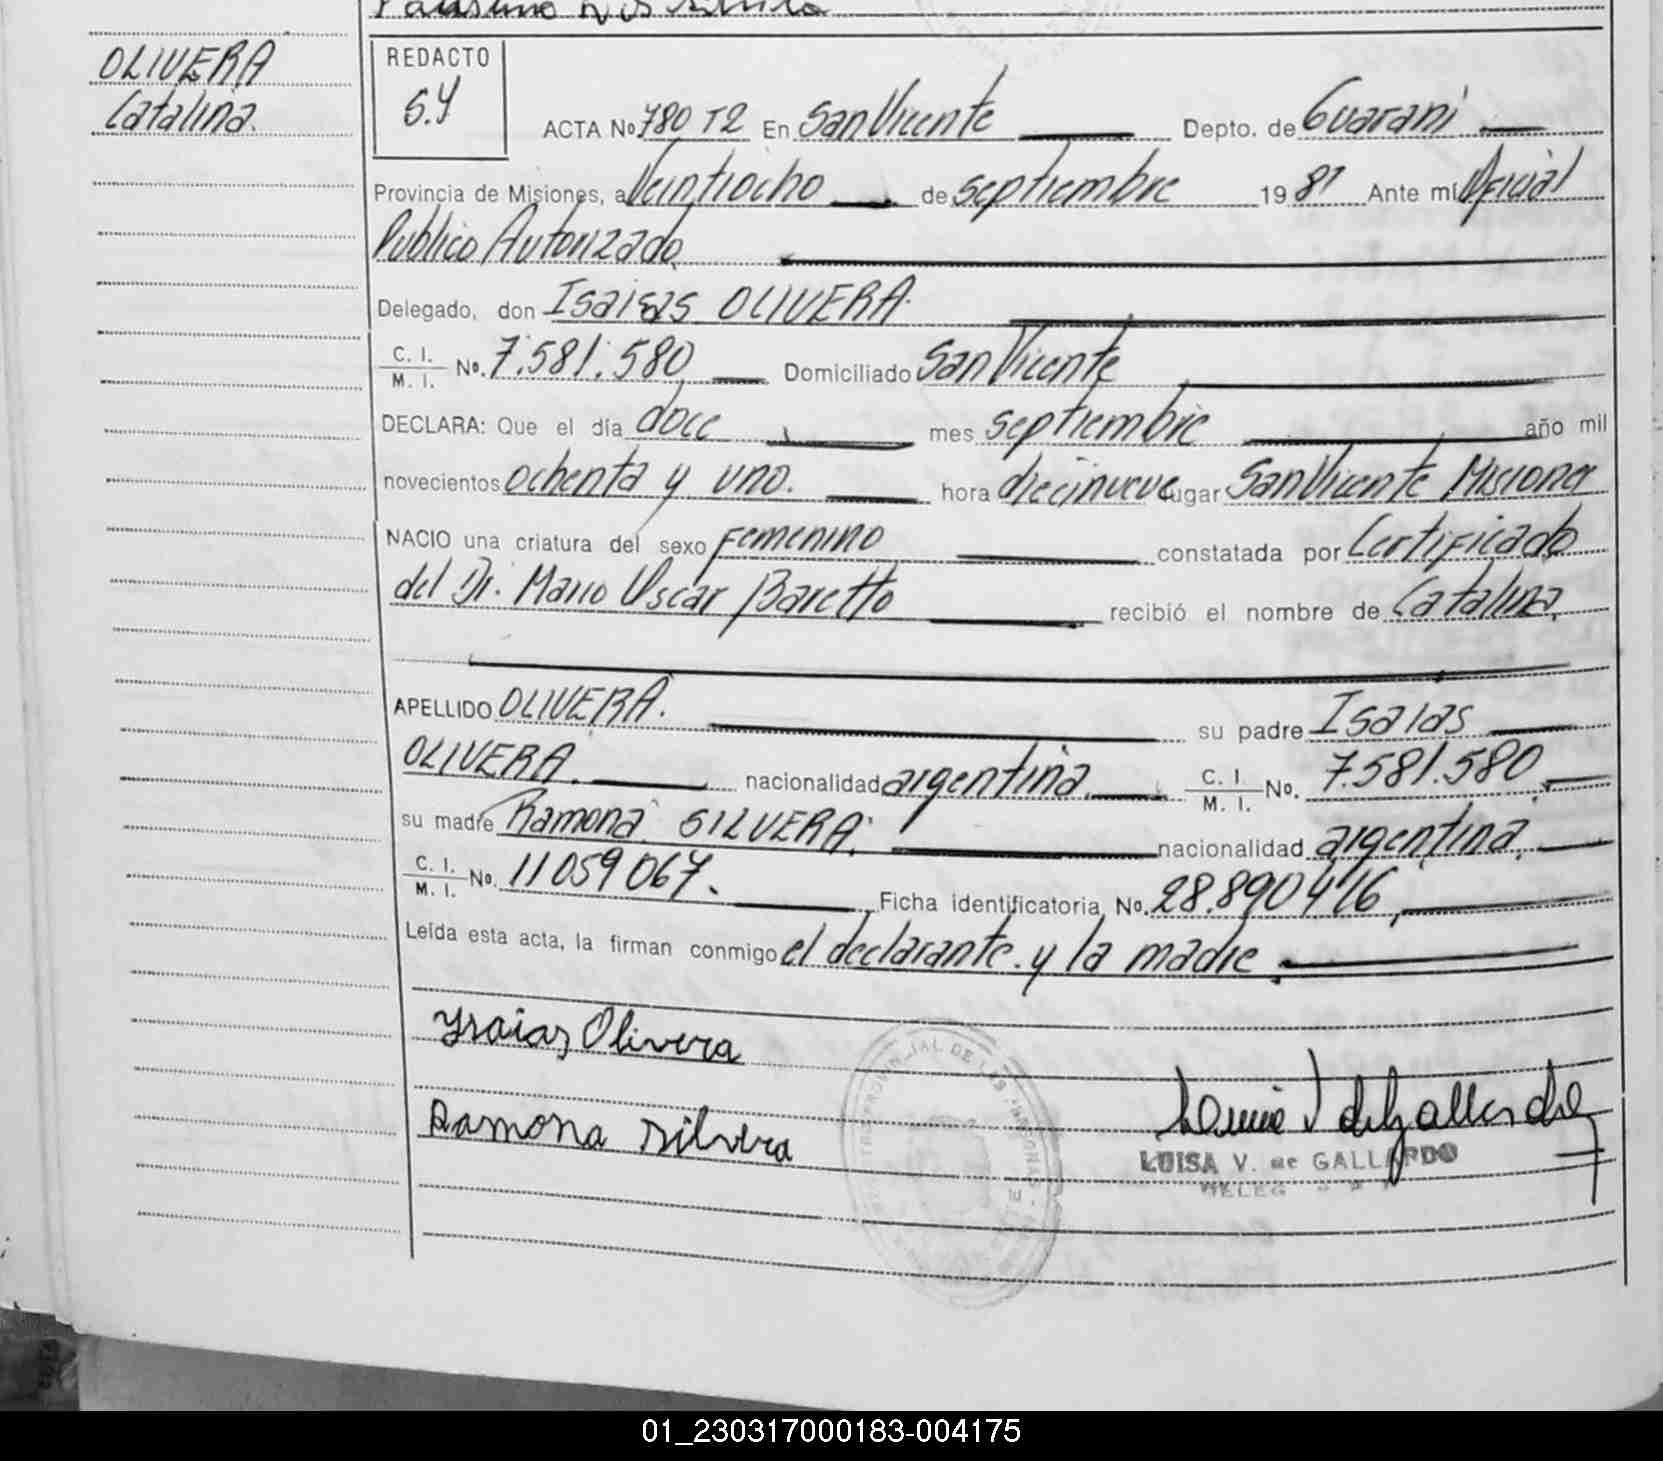 OLIVERA
Catalina.
REDACTO
S.Y
ACTA No 780 T2 En San Vicente Depto. de Guarani
Provincia de Misiones, a Veintiocho de septiembre 19 81 Ante mí Oficial
Publico Autorizado
Delegado, don Isaias OLIVERA.
C. I.
M. I. No. 7.581.580 Domiciliado San Vicente
DECLARA: Que el día doce mes septiembre año mil
novecientos ochenta y uno. hora diecinueve lugar San Vicente Misiones
NACIO una criatura del sexo Femenino constatada por Certificado
del Dr. Mario Oscar Baretto recibió el nombre de Catalina,
APELLIDO OLIVERA. su padre Isaias
OLIVERA. nacionalidad argentina. C. I.
M. I. No. 7.581.580
su madre Ramona SILVERA. nacionalidad argentina.
C. I.
M. I. No. 11 059 067. Ficha identificatoria No. 28.890 416
Leída esta acta, la firman conmigo el declarante. y la madre.
Ysaias Olivera
Ramona Silvera
LUISA V. de GALLARDO
01_230317000183-004175